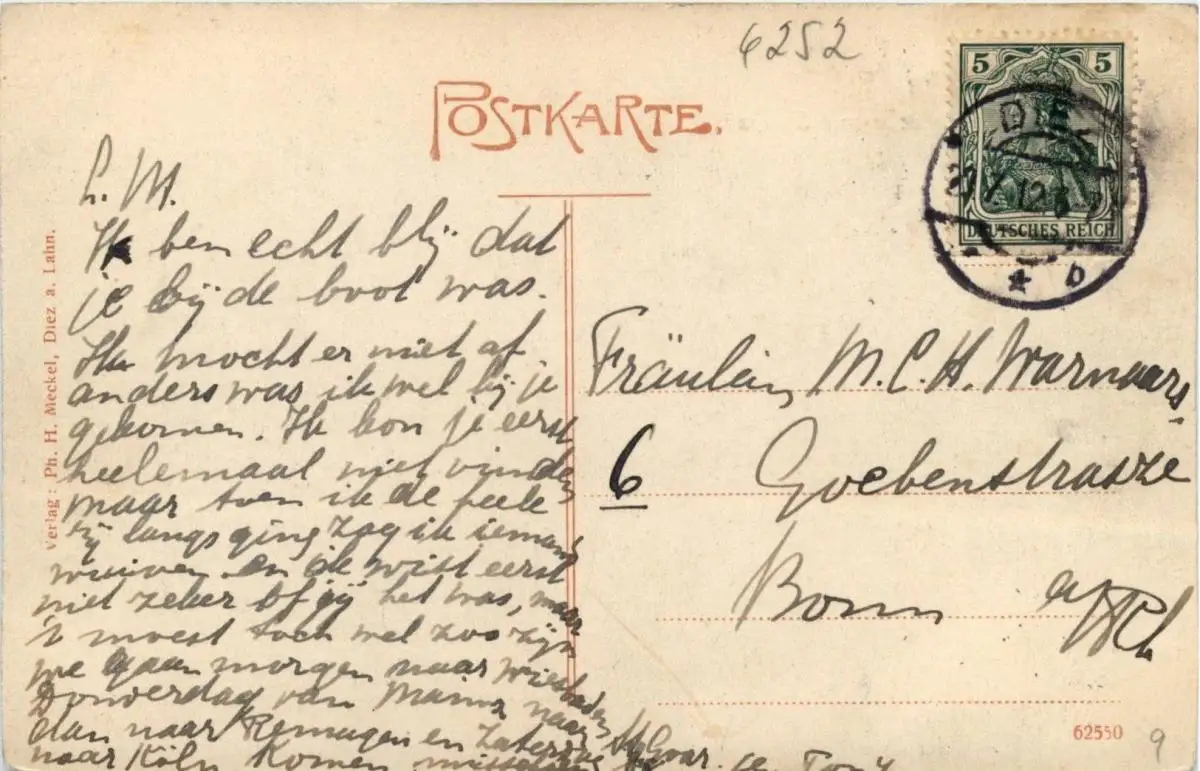 6252
POSTKARTE.
5 5
DEUTSCHES REICH
DIEZ
* b
Verlag: Ph. H. Meckel, Diez a. Lahn.
L. M.
Ik ben echt blij dat
je bij de boot was.
Ik mocht er niet af,
anders was ik wel bij je
gekomen. Ik kon je eerst
heelemaal niet vinden
maar toen ik de heele
rij langs ging zag ik iemand
wuiven en ik wist eerst
niet zeker of jij het was, maar
't moest toch wel zoo zijn
we gaan morgen naar Wiesbaden
Donderdag van Mainz naar
St. Goar.
dan naar Remagen en Zaterdag
naar Köln komen
Fräulein M. C. H. Warnaars.
6 Goebenstrasze
Bonn a/Rh
62550
9